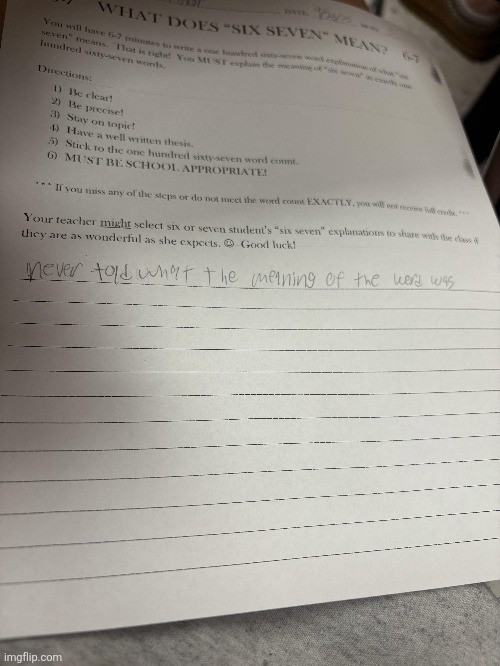 WHAT DOES "SIX SEVEN" MEAN? 6-7
You will have 6-7 minutes to write a one hundred sixty-seven word explanation of what "six
seven" means. That is right! You MUST explain the meaning of "six seven" in exactly one
hundred sixty-seven words.
Directions:
1) Be clear!
2) Be precise!
3) Stay on topic!
4) Have a well written thesis.
5) Stick to the one hundred sixty-seven word count.
6) MUST BE SCHOOL APPROPRIATE!
*** If you miss any of the steps or do not meet the word count EXACTLY, you will not receive full credit. ***
Your teacher might select six or seven student's "six seven" explanations to share with the class if
they are as wonderful as she expects. ☺ Good luck!
never told what the meaning of the word was
imgflip.com